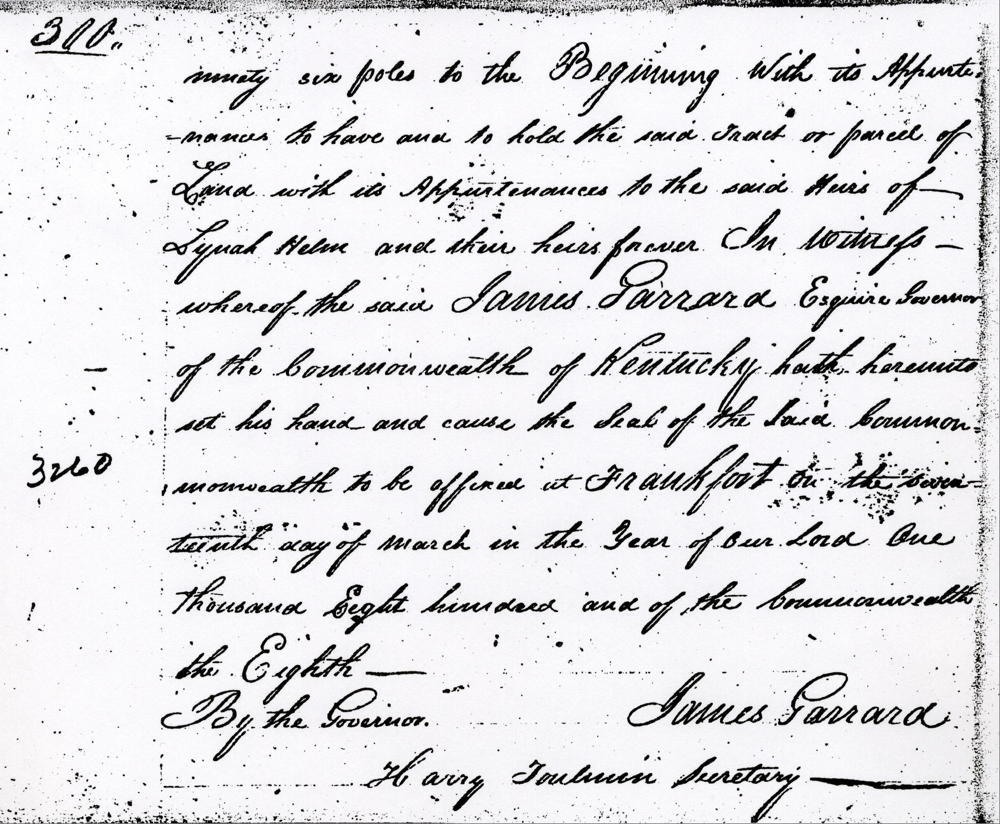 300.
ninety six poles to the Beginning With its Appurte-
-nances to have and to hold the said Tract or parcel of
Land with its Appurtenances to the said Heirs of
Lynah Helm and their heirs forever In Witness
whereof the said James Garrard Esquire Governor
of the Commonwealth of Kentucky hath hereunto
set his hand and cause the Seal of the Said Common-
3260
monwealth to be affixed at Frankfort on the seven-
teenth day of March in the Year of Our Lord One
thousand Eight hundred and of the Commonwealth
the Eighth
By the Governor. James Garrard
Harry Toulmin Secretary